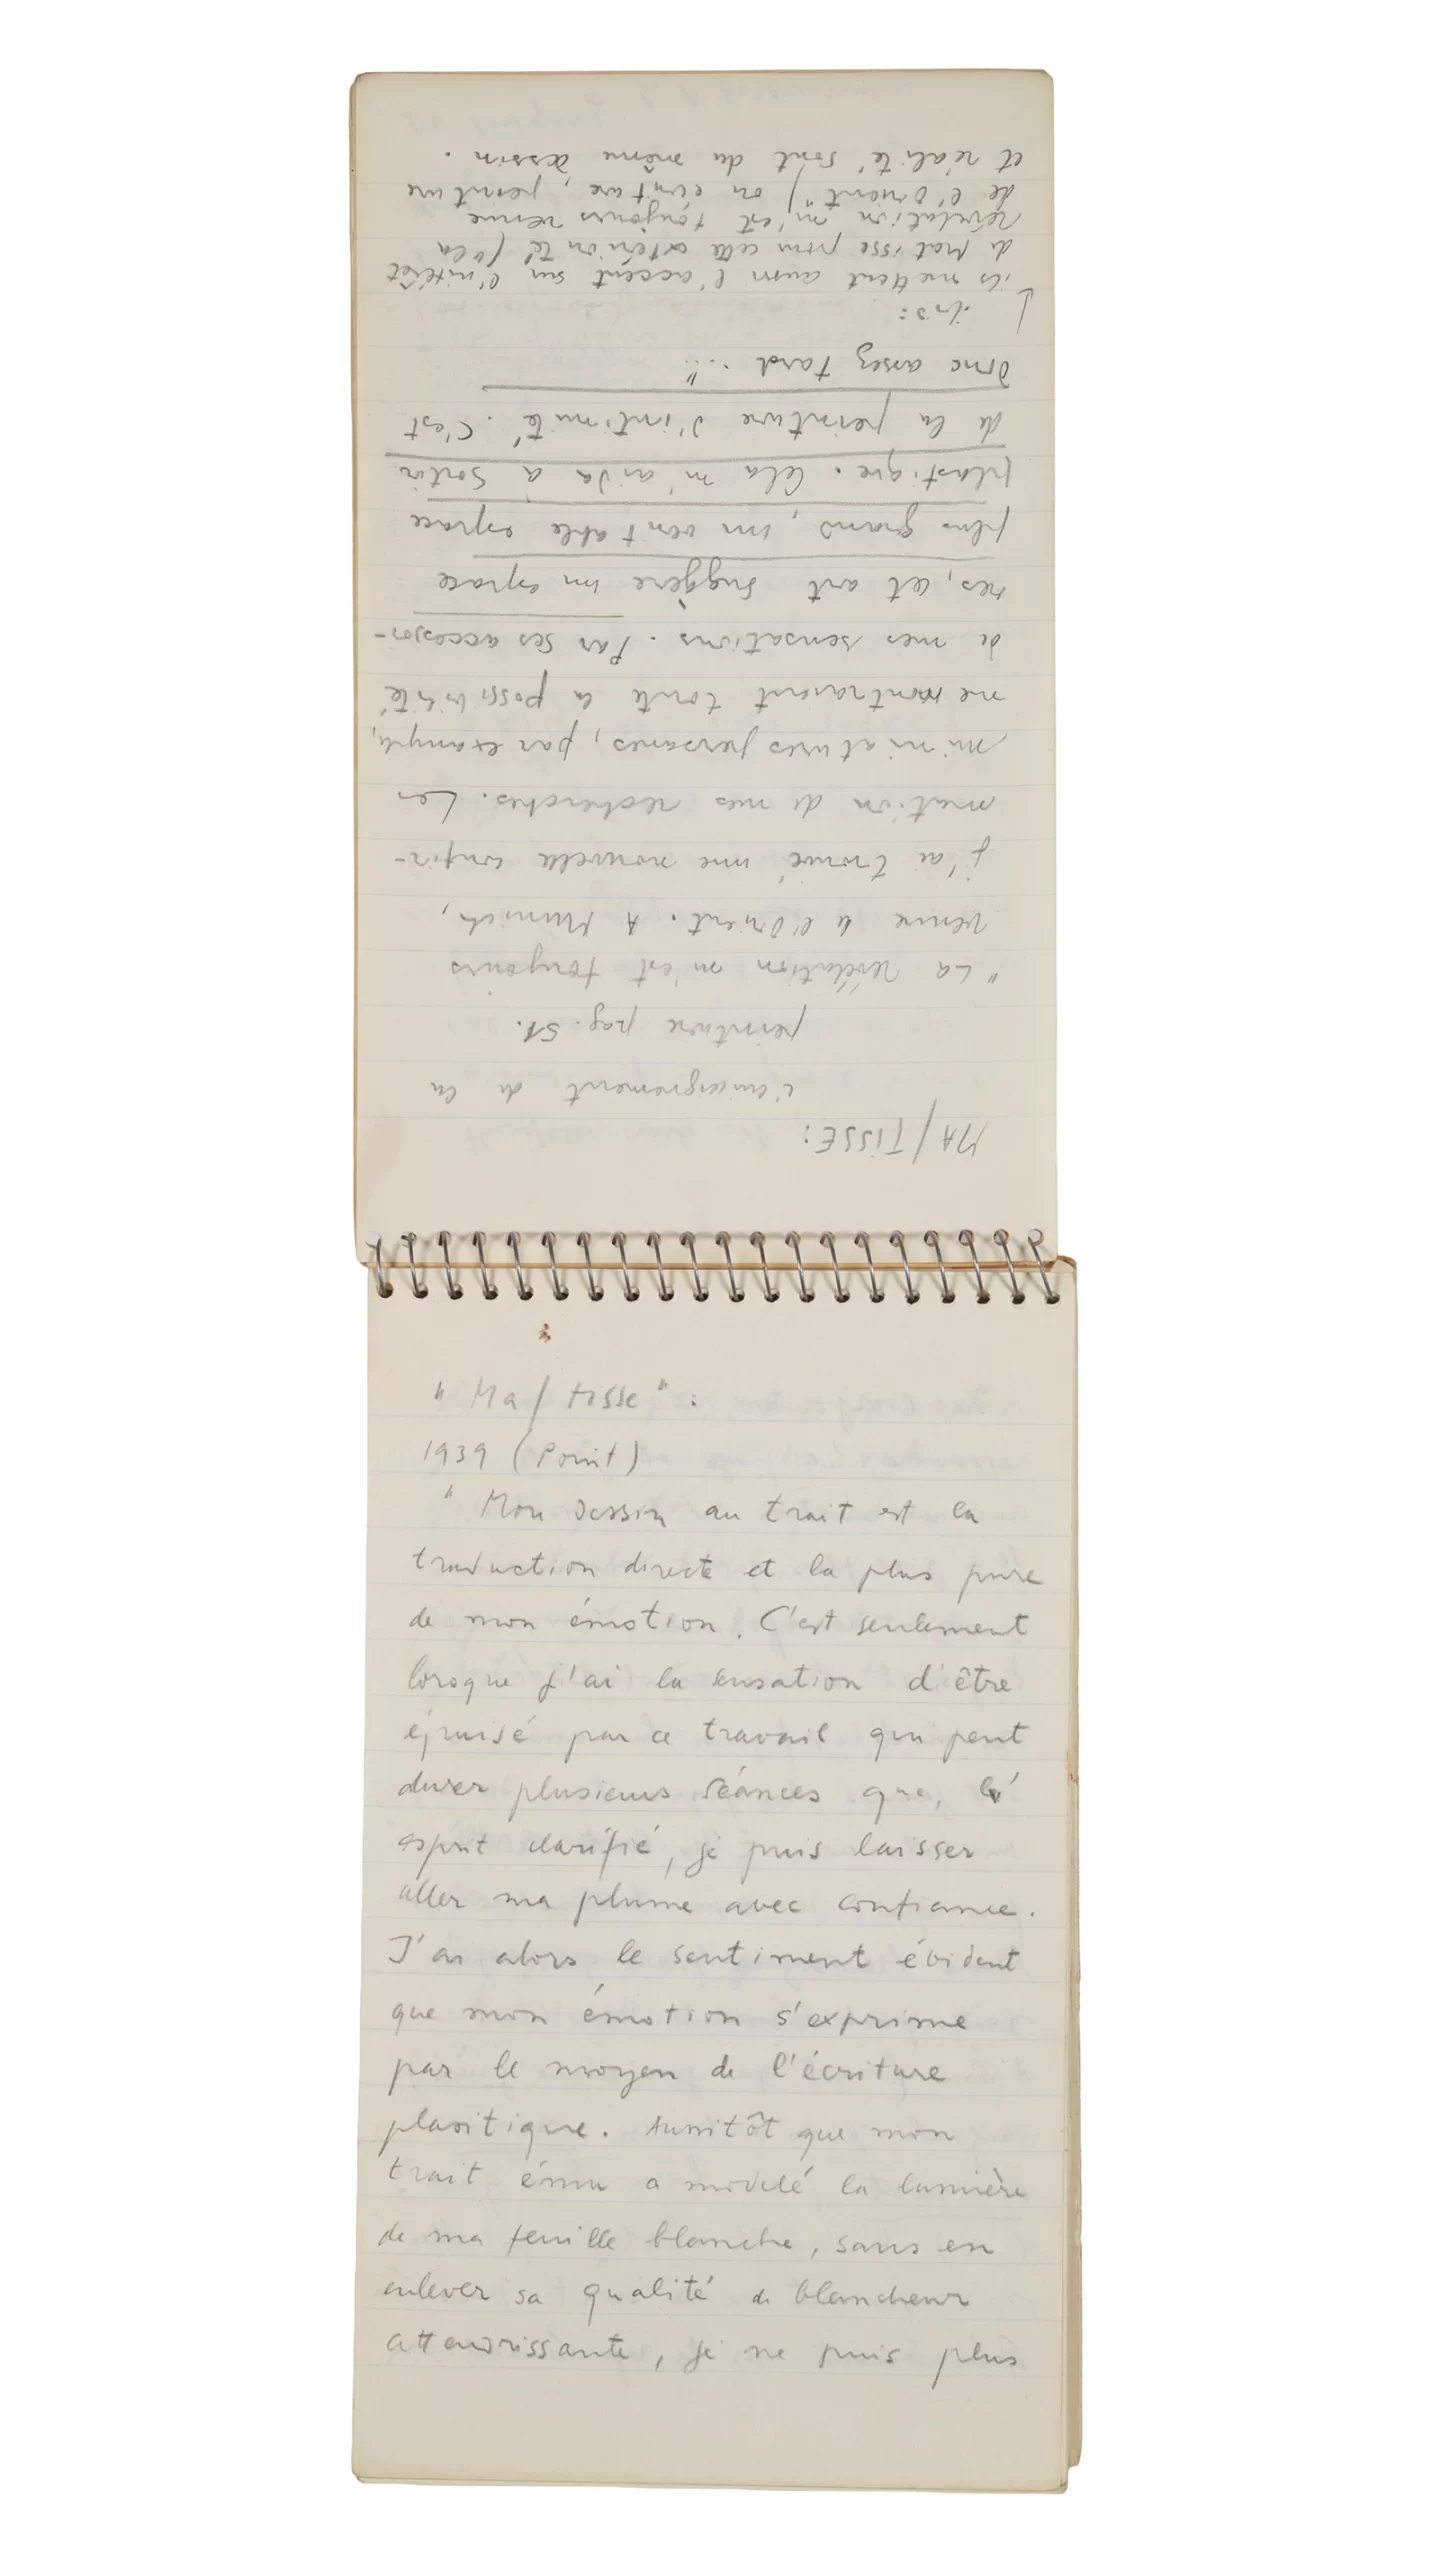 MA/TISSE:
l'enseignement de la
peinture pag. 51.
"La révélation m'est toujours
venue de l'Orient. A Munich,
j'ai trouvé une nouvelle confir-
mation de mes recherches. Les
miniatures persanes, par exemple,
me montraient toute la possibilité
de mes sensations. Par ses accessoi-
res, cet art suggère un espace
plus grand, un véritable espace
plastique. Cela m'aida à sortir
de la peinture d'intimité. C'est
donc assez tard ..."
ils mettent aussi l'accent sur l'intérêt
de Matisse pour cette extériorité ("la
révélation m'est toujours venue
de l'Orient") où écriture, peinture
et réalité sont du même dessin.
"Ma/tisse":
1939 (Point)
"Mon dessin au trait est la
traduction directe et la plus pure
de mon émotion. C'est seulement
lorsque j'ai la sensation d'être
épuisé par ce travail qui peut
durer plusieurs séances que, l'
esprit clarifié, je puis laisser
aller ma plume avec confiance.
J'ai alors le sentiment évident
que mon émotion s'exprime
par le moyen de l'écriture
plasitique. Aussitôt que mon
trait ému a modelé la lumière
de ma feuille blanche, sans en
enlever sa qualité de blancheur
attendrissante, je ne puis plus